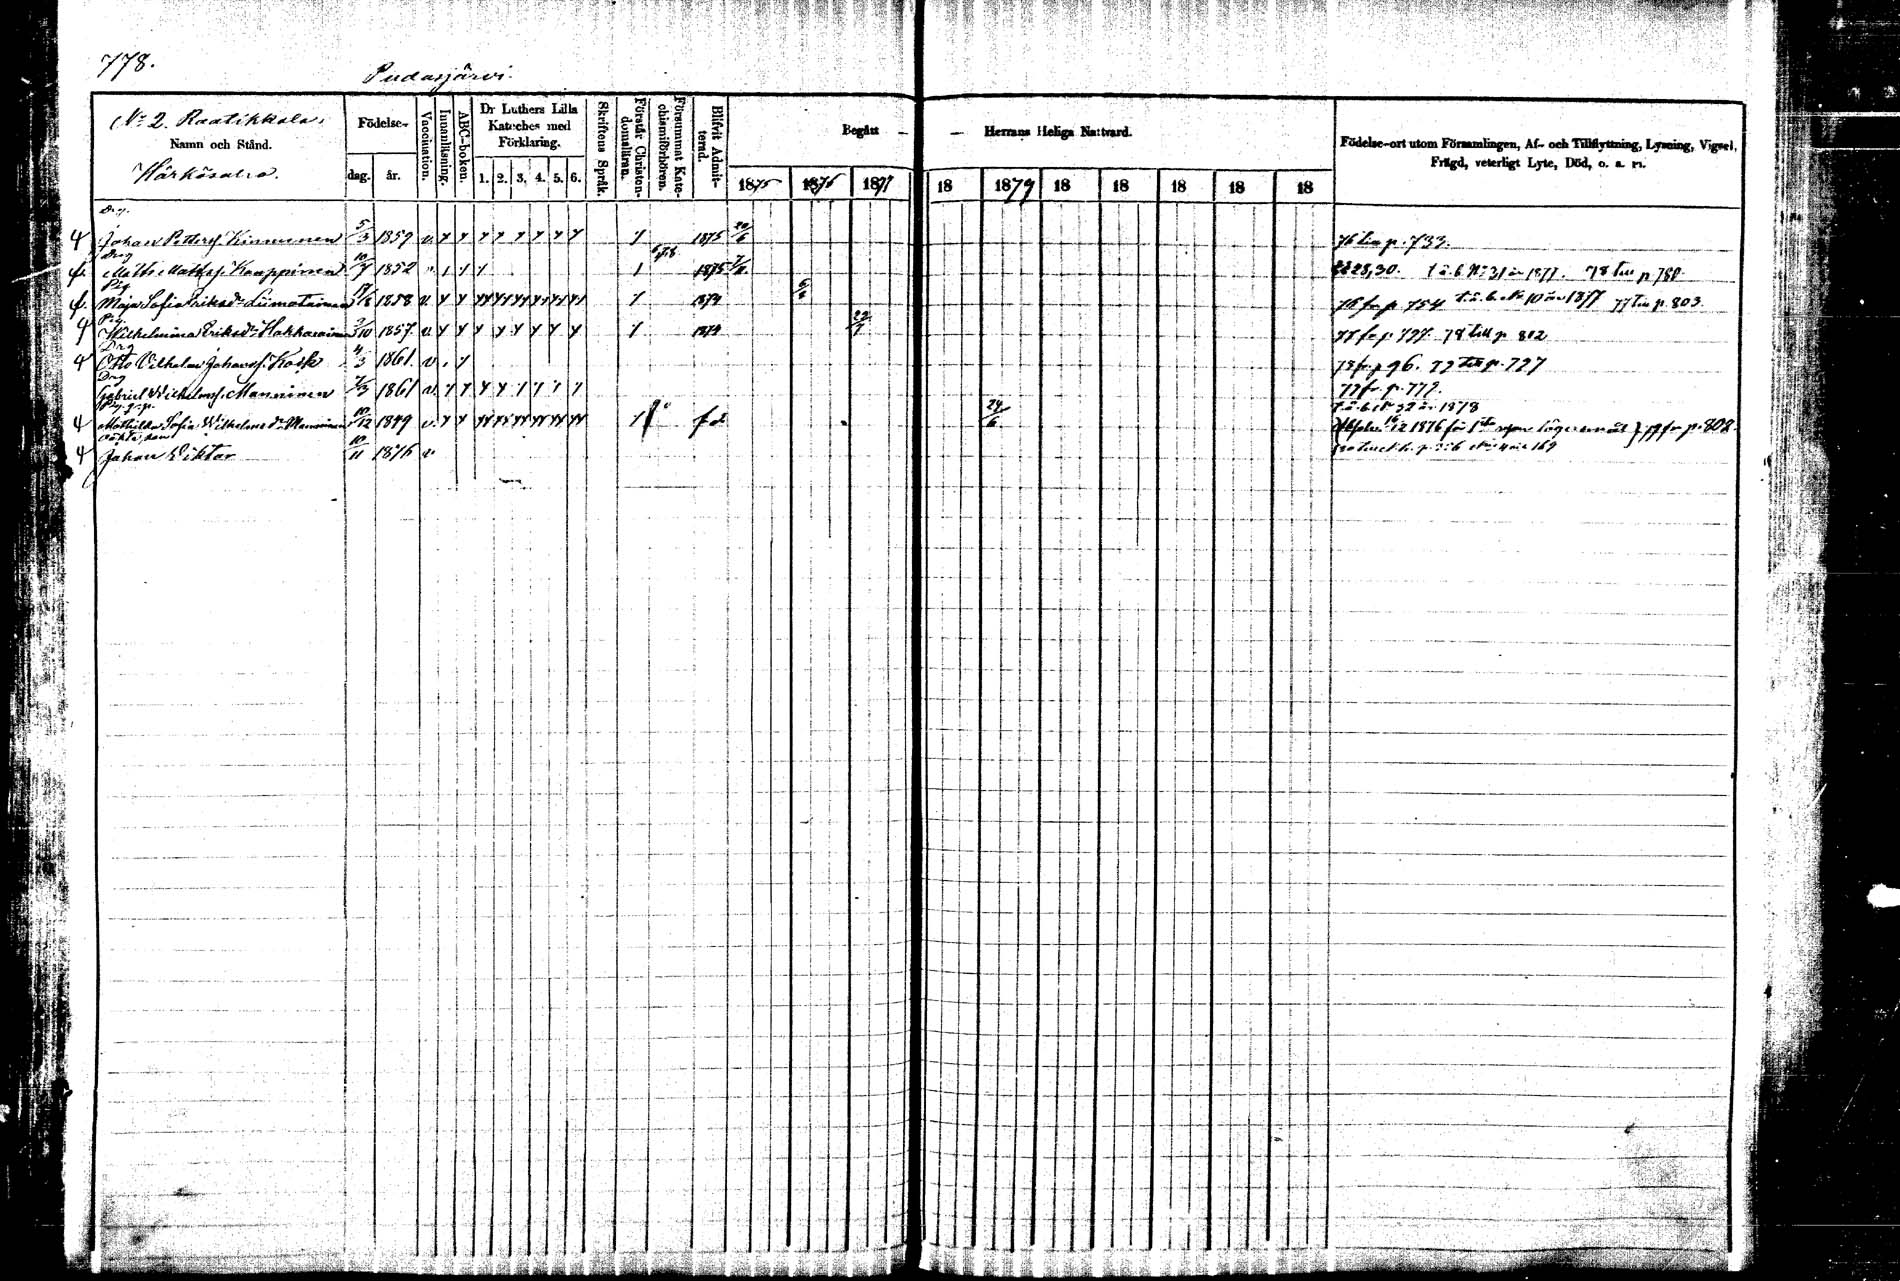 778.
Pudasjärvi.
No 2. Raatikkala
Namn och Stånd.
Härkösalo.
Födelse-
dag. år.
Vaccination.
Innanläsning.
ABC-boken.
Dr Luthers Lilla Kateches med Förklaring.
1. 2. 3. 4. 5. 6.
Skriftens Språk.
Förstår Christendomsläran.
Försummat Katechismiförhören.
Blifvit Admitterad.
Begått — — Herrans Heliga Nattvard.
1875 1876 1877 18 1879 18 18 18 18 18
Födelse-ort utom Församlingen, Af- och Tillflyttning, Lysning, Vigsel,
Frägd, veterligt Lyte, Död, o. a. m.
Drg.
Johan Petterss. Kinnunen 5/3 1859 v. 1875 20/6 76 till p. 733.
Drg
Matts Mattss. Kauppinen 10/7 1852 1875 28,30. t.å.b. No 31 år 1877. 78 till p 780.
Pig
Maja Sofia Eriksdr Liimatainen 1858 v. 1874 76 fr p. 754 t.å.b. No 10 år 1877 77 till p. 803.
Pig.
Wilhelmina Eriksdr Hakkarainen 1857 v. 1874 22/7 77 fr p. 797. 78 till p 802
Drg
Otto Vilhelm Johanss. Kosk 4/3 1861. v. 78 fr p 96. 79 till p. 727
Drg
Gabriel Wilhelmss. Manninen 7/3 1861 v. 77 fr. p. 777.
t.å.b. No 32 år 1878
Mathilda Sofia Wilhelmsdr Manninen 10/12 1849 v. f d 24/6 1876 för 1sta resan lägersmål 79 fr p. 802.
oäkta son
Johan Viktor 10/11 1876 v